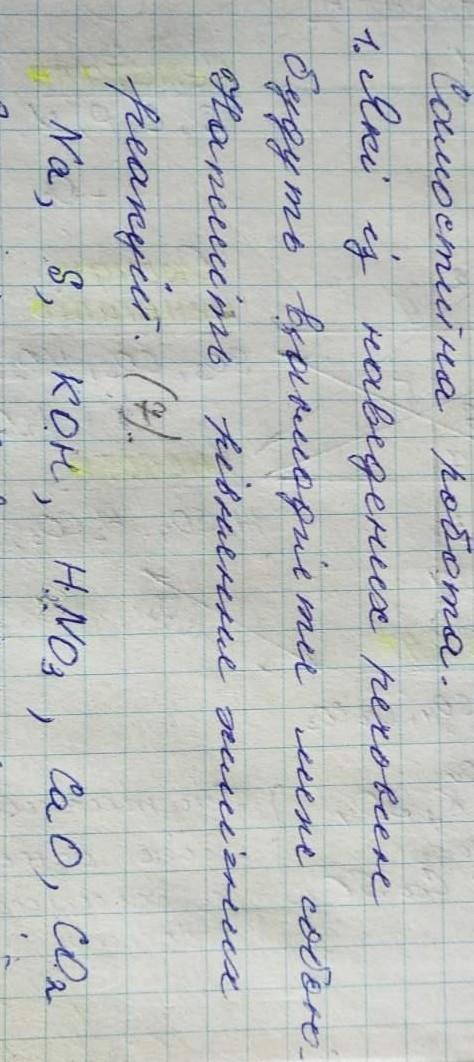 Самостійна робота.
1. Які із наведених речовин
будуть взаємодіяти між собою.
Напишіть рівняння хімічних
реакцій. (7).
Na, S, KOH, HNO3, CaO, CO2